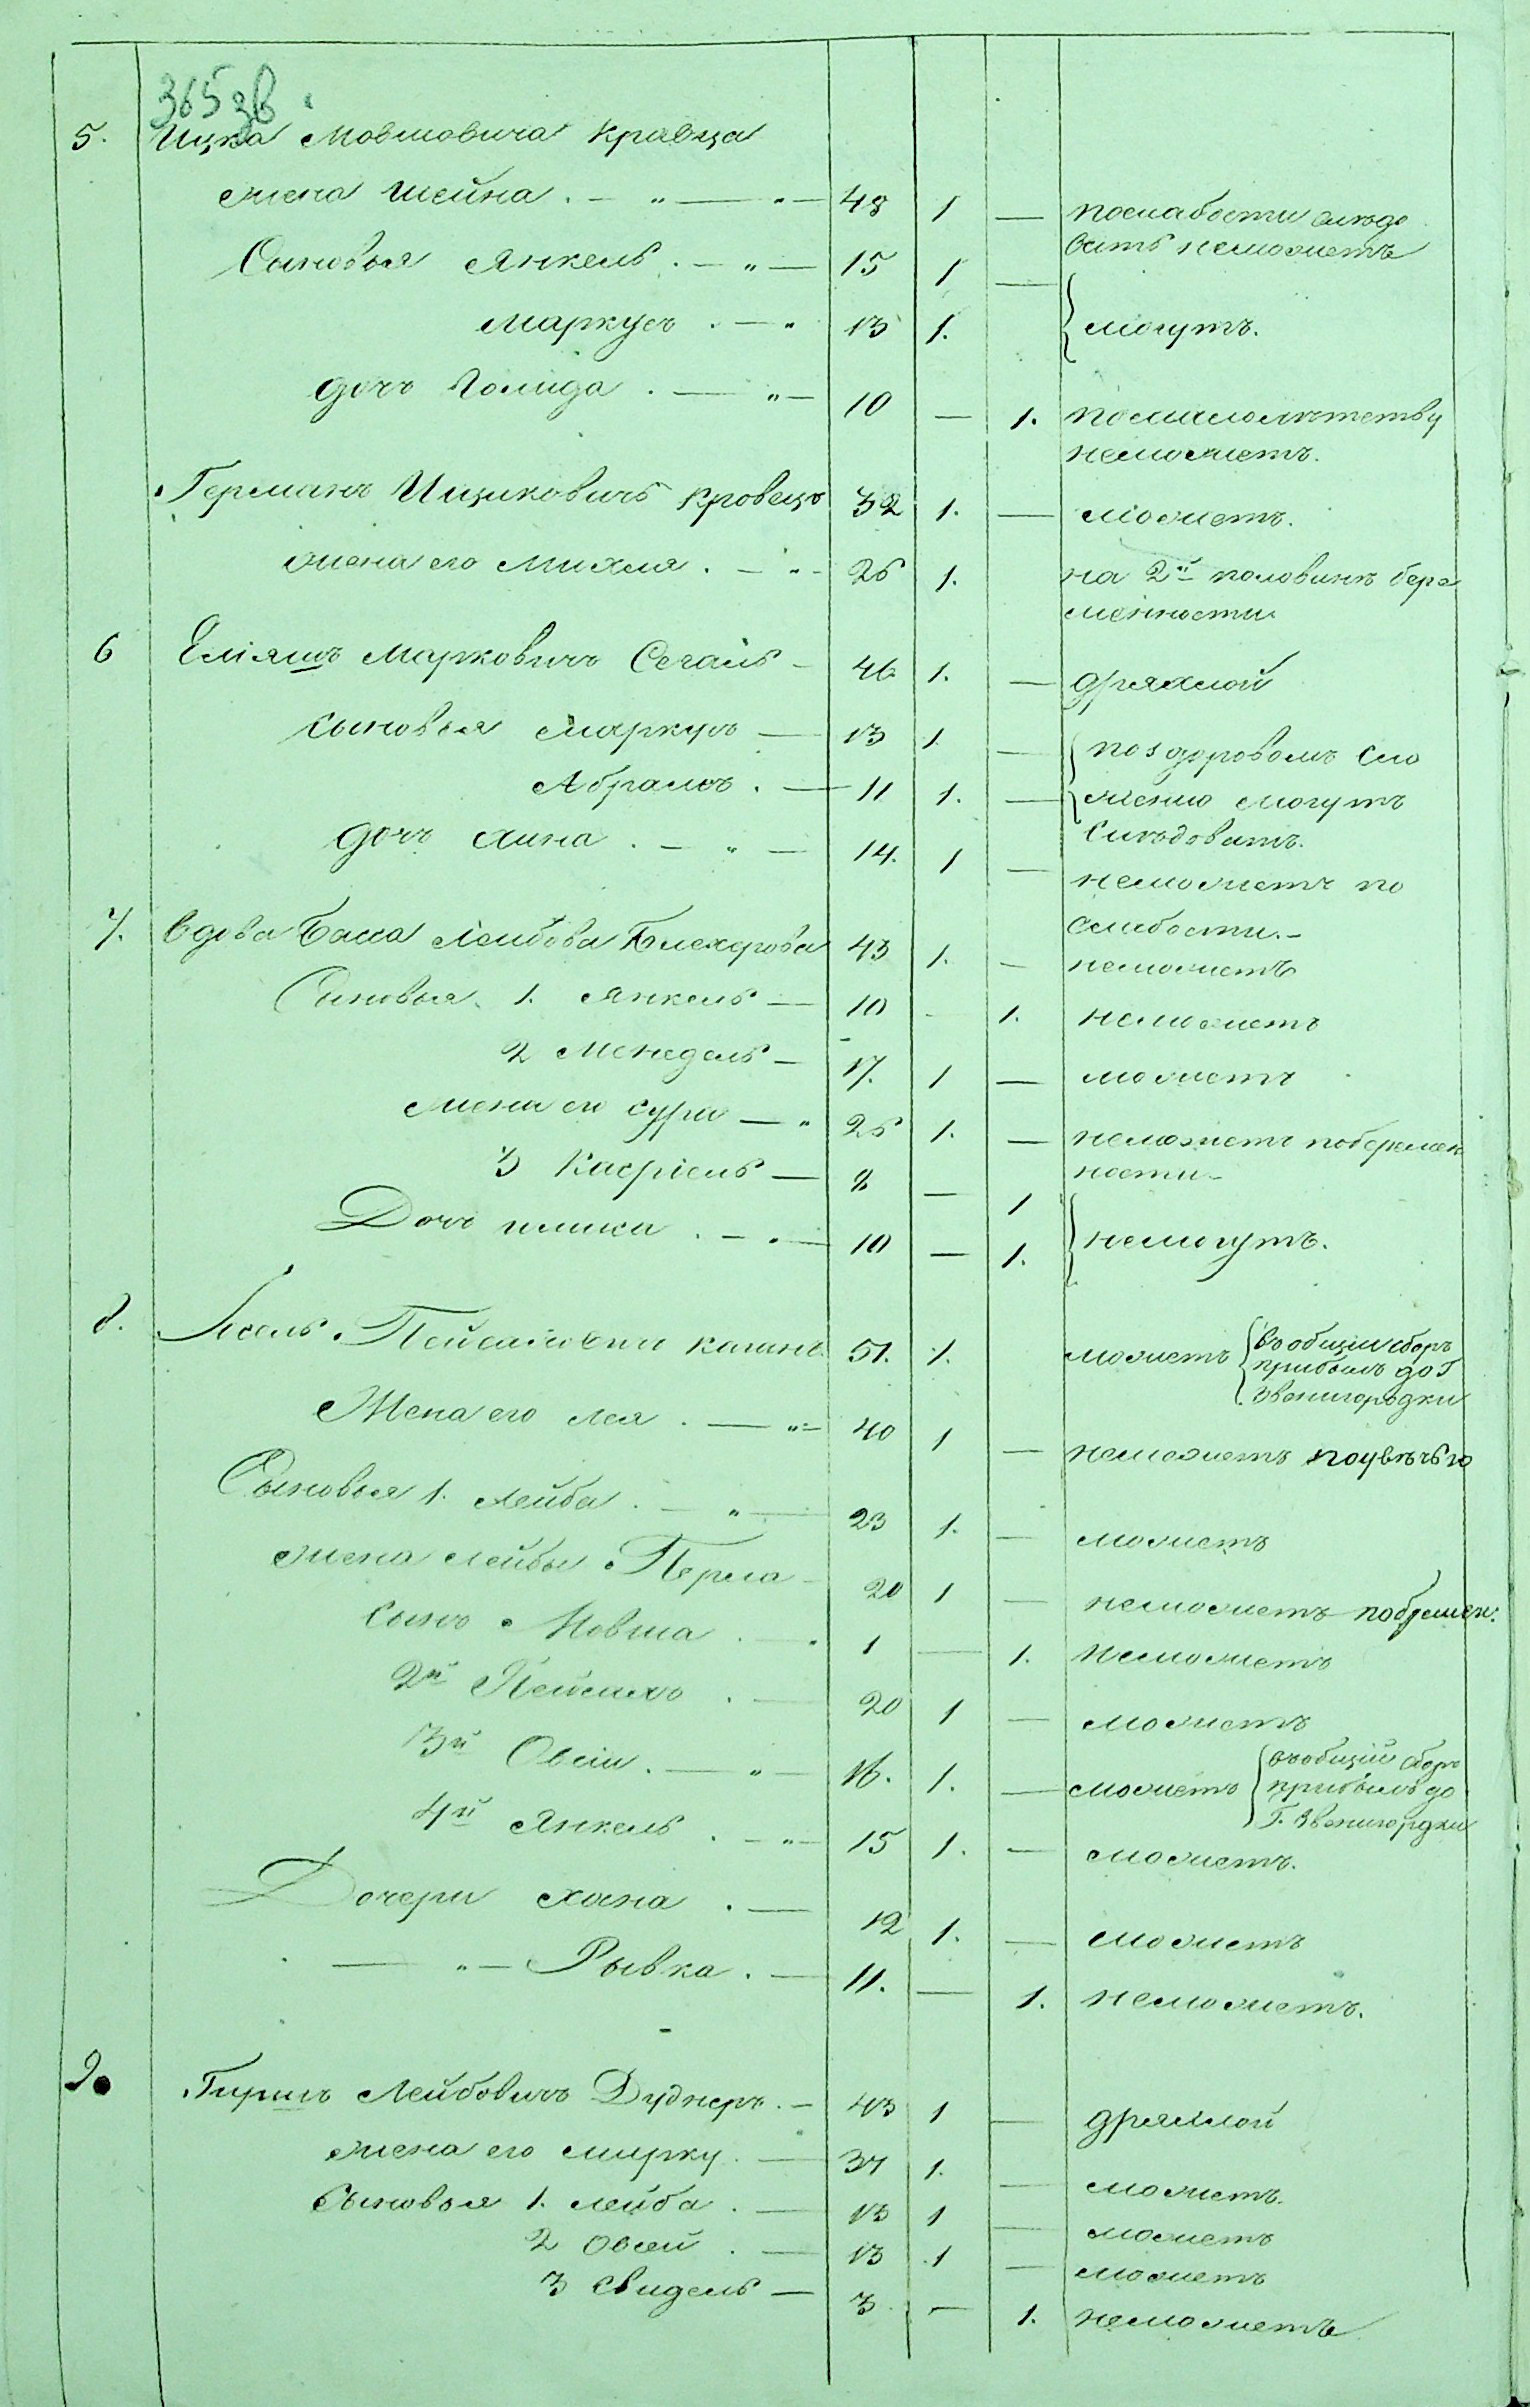 365 зв.
5. Ицка Мовшовича Кравца
жена Шейна . — „ — „ — 48 1 — по слабости слѣдо
вать неможетъ
Сыновья Янкель . — „ — 15 1 —
Маркусъ . — „ 13 1. могутъ.
дочь Голида . — „ — 10 — 1. по малолѣтству
неможетъ.
Германъ Ицковичъ Кровецъ 32 1. — можетъ.
жена его Михля . — „ — 26 1. на 2й половинѣ бере
менности
6 Еліяшъ Марковичъ Сегаль — 46 1. — дряхлой
сыновья Маркусъ — 13 1 — по здоровомъ сло
Абрамъ . — 11 1. — жению могутъ
слѣдовать.
дочь Хина . — „ — 14. 1 — неможетъ по
слабости. —
7. вдова Баса Лейбова Блехерова 43 1. — неможетъ
Сыновья 1. Янкель — 10 — 1. неможетъ
2 Менедель — 17. 1 — можетъ
жена его Сура — „ 25 1. — неможетъ по беремен
ности —
3 Касріель — 8 — 1
Дочь . — . — 10 — 1. немогутъ.
8. Іосель Пейсаховичъ Каганъ 51. 1. можетъ въ общій сборъ
прибылъ до Г
Звенигородки
Жена его Лея . — „ — 40 1 — неможетъ по увѣчью
Сыновья 1. Лейба . — „ — 23 1. — можетъ
жена Лейбы Перла — 20 1 — неможетъ по бремен.
сынъ Мовша . — „ 1 — 1. неможетъ
2й Пейсахъ . — 20 1 — можетъ
3й Овсій . — „ — 16. 1. — можетъ въ общій сборъ
прибылъ до
Г. Звенигородки
4й Янкель . — „ — 15 1. — можетъ.
Дочери Хана . — 12 1. — можетъ
— „ — Рывка . — 11. — 1. неможетъ.
9. Гиршъ Лейбовичъ Дуднеръ . — 43 1 — дряхлой
жена его Мирку . — 37 1. — можетъ.
Сыновья 1. Лейба . — 13 1 — можетъ
2 Овсей . — 13 1 — можетъ
3 Свидель — 3 — 1. неможетъ